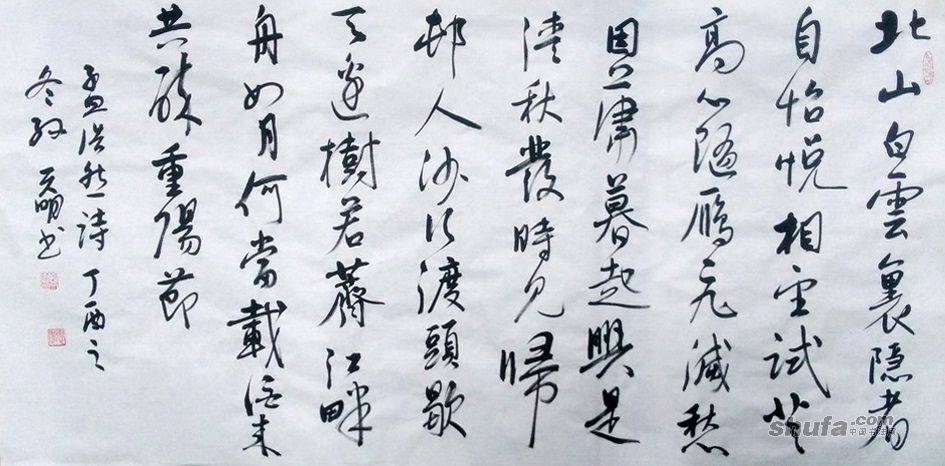 北山白雲裏隐者
自怡悦相望試登
高心隨雁飛滅愁
因薄暮起興是
清秋發時見歸
邨人沙行渡頭歇
天邊樹若薺江畔
舟如月何當載酒来
共醉重陽節
孟浩然詩丁酉之
冬 明书
shufa.com
中国书法网